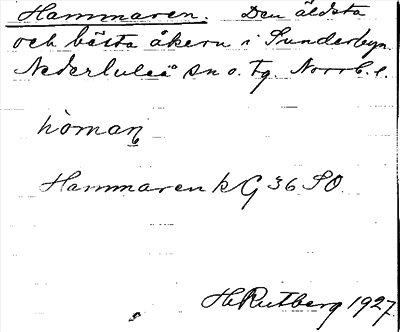 Hammaren. Den äldsta
och bästa åkern i Sunderbyn.
Nederluleå sn o. tg. Norrb. l.
hòman
Hammaren kG 36 SO
H. Rutberg 1927.